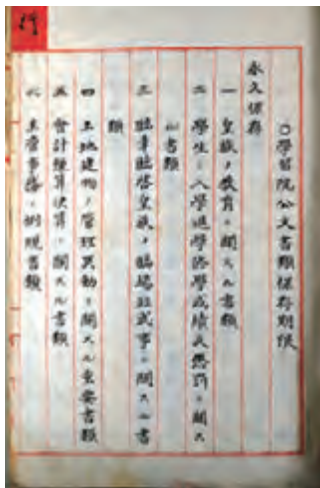 ○學習院公文書類保存期限
永久保存
一 皇族ノ教育ニ関スル書類
二 學生ノ入學進學修學成績及懲罰ニ関ス
ル書類
三 臨幸臨啓皇族ノ臨場並式事ニ関スル書
類
四 土地建物ノ管理異動ニ関スル重要書類
五 會計豫算決算ニ関スル書類
六 主管事務ノ例規書類